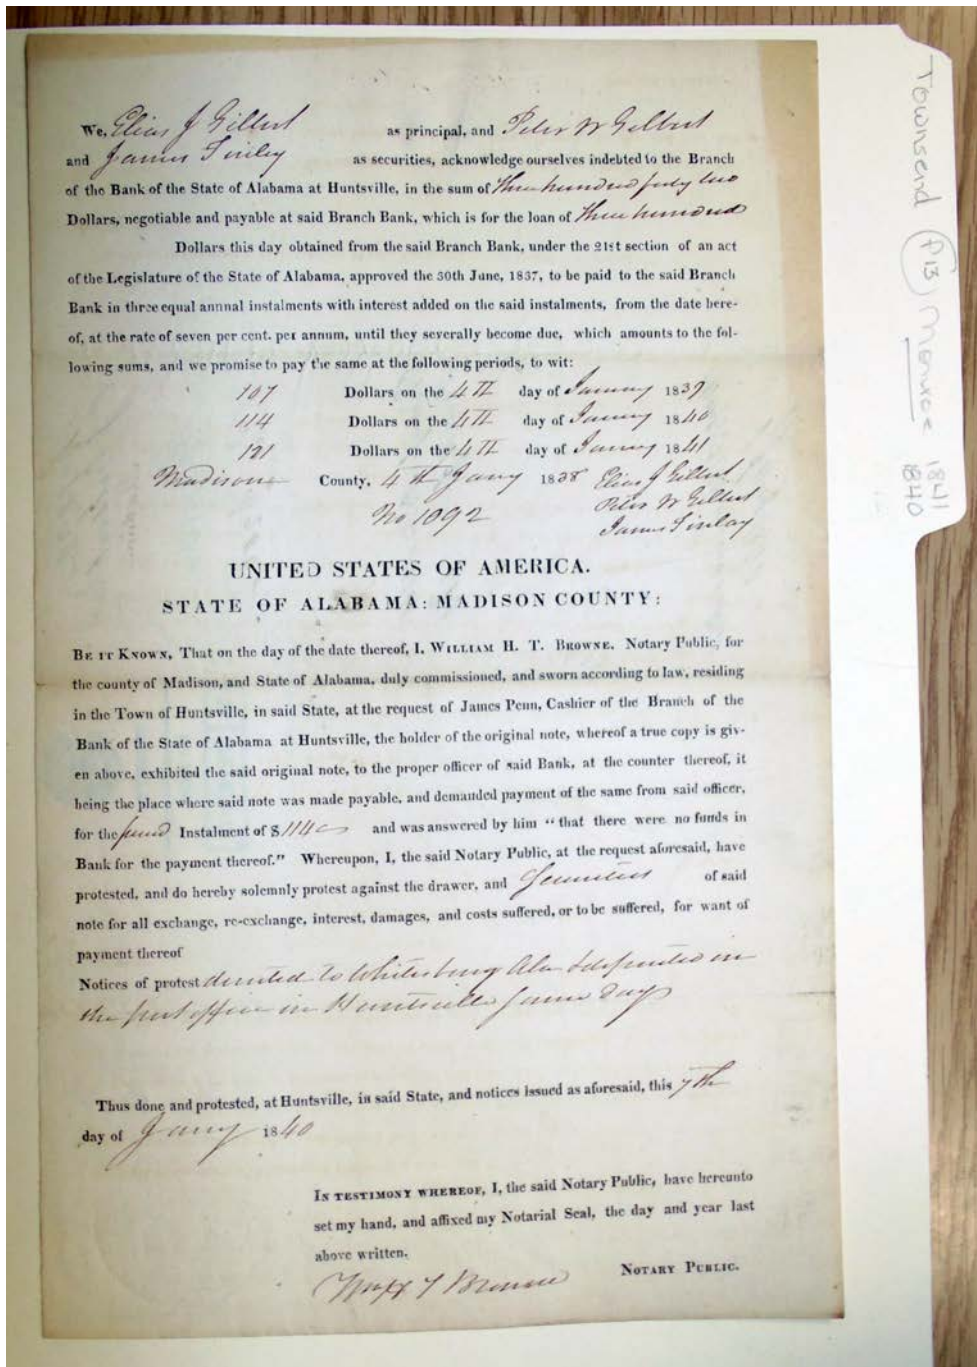 We, Elias J Gilbert as principal, and Peter W Gilbert
and James Finley as securities, acknowledge ourselves indebted to the Branch
of the Bank of the State of Alabama at Huntsville, in the sum of Three hundred forty two
Dollars, negotiable and payable at said Branch Bank, which is for the loan of Three hundred
Dollars this day obtained from the said Branch Bank, under the 21st section of an act
of the Legislature of the State of Alabama, approved the 30th June, 1837, to be paid to the said Branch
Bank in three equal annual instalments with interest added on the said instalments, from the date here-
of, at the rate of seven per cent. per annum, until they severally become due, which amounts to the fol-
lowing sums, and we promise to pay the same at the following periods, to wit:
107 Dollars on the 4th day of January 1839
114 Dollars on the 4th day of January 1840
121 Dollars on the 4th day of January 1841
Madison County, 4th Jany 1838 Elias J Gilbert
Peter W Gilbert
No 1092
James Finlay
UNITED STATES OF AMERICA.
STATE OF ALABAMA: MADISON COUNTY:
BE IT KNOWN, That on the day of the date thereof, I, WILLIAM H. T. BROWNE, Notary Public, for
the county of Madison, and State of Alabama, duly commissioned, and sworn according to law, residing
in the Town of Huntsville, in said State, at the request of James Penn, Cashier of the Branch of the
Bank of the State of Alabama at Huntsville, the holder of the original note, whereof a true copy is giv-
en above, exhibited the said original note, to the proper officer of said Bank, at the counter thereof, it
being the place where said note was made payable, and demanded payment of the same from said officer,
for the Instalment of $114 and was answered by him "that there were no funds in
Bank for the payment thereof." Whereupon, I, the said Notary Public, at the request aforesaid, have
protested, and do hereby solemnly protest against the drawer, and Securities of said
note for all exchange, re-exchange, interest, damages, and costs suffered, or to be suffered, for want of
payment thereof
Notices of protest directed to Whitesburg Ala & deposited in
the post office in Huntsville same day
Thus done and protested, at Huntsville, in said State, and notices issued as aforesaid, this 7th
day of Jany 1840
IN TESTIMONY WHEREOF, I, the said Notary Public, have hereunto
set my hand, and affixed my Notarial Seal, the day and year last
above written.
Wm H T Browne NOTARY PUBLIC.
Townsend P13 Monroe 1841
1840